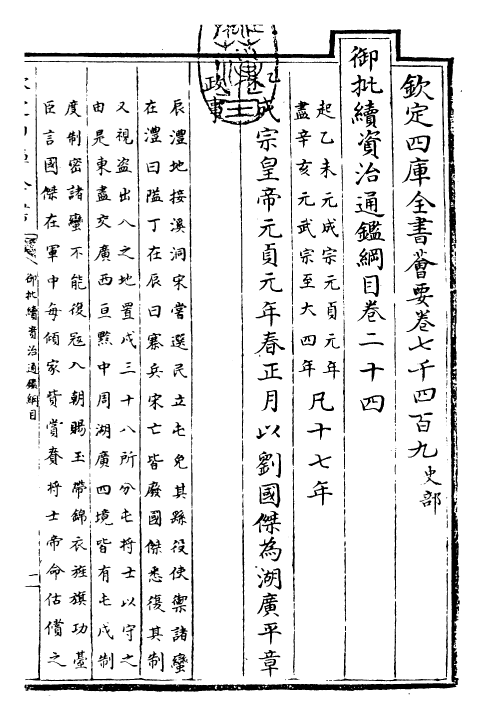 欽定四庫全書薈要卷七千四百九 史部
御批續資治通鑑綱目卷二十四
起乙未元成宗元貞元年
盡辛亥元武宗至大四年
凡十七年
成宗皇帝元貞元年春正月以劉國傑為湖廣平章
政事
辰澧地接溪洞宋嘗選民立屯免其繇役使禦諸蠻
在澧曰隘丁在辰曰寨兵宋亡皆廢國傑悉復其制
又視盜出入之地置戍三十八所分屯將士以守之
由是東盡交廣西亘黔中周湖廣四境皆有屯戍制
度制密諸蠻不能復冦入朝賜玉帶錦衣旌旗功臺
臣言國傑在軍中每傾家貲賞賚將士帝命估償之
御批續資治通鑑綱目
一